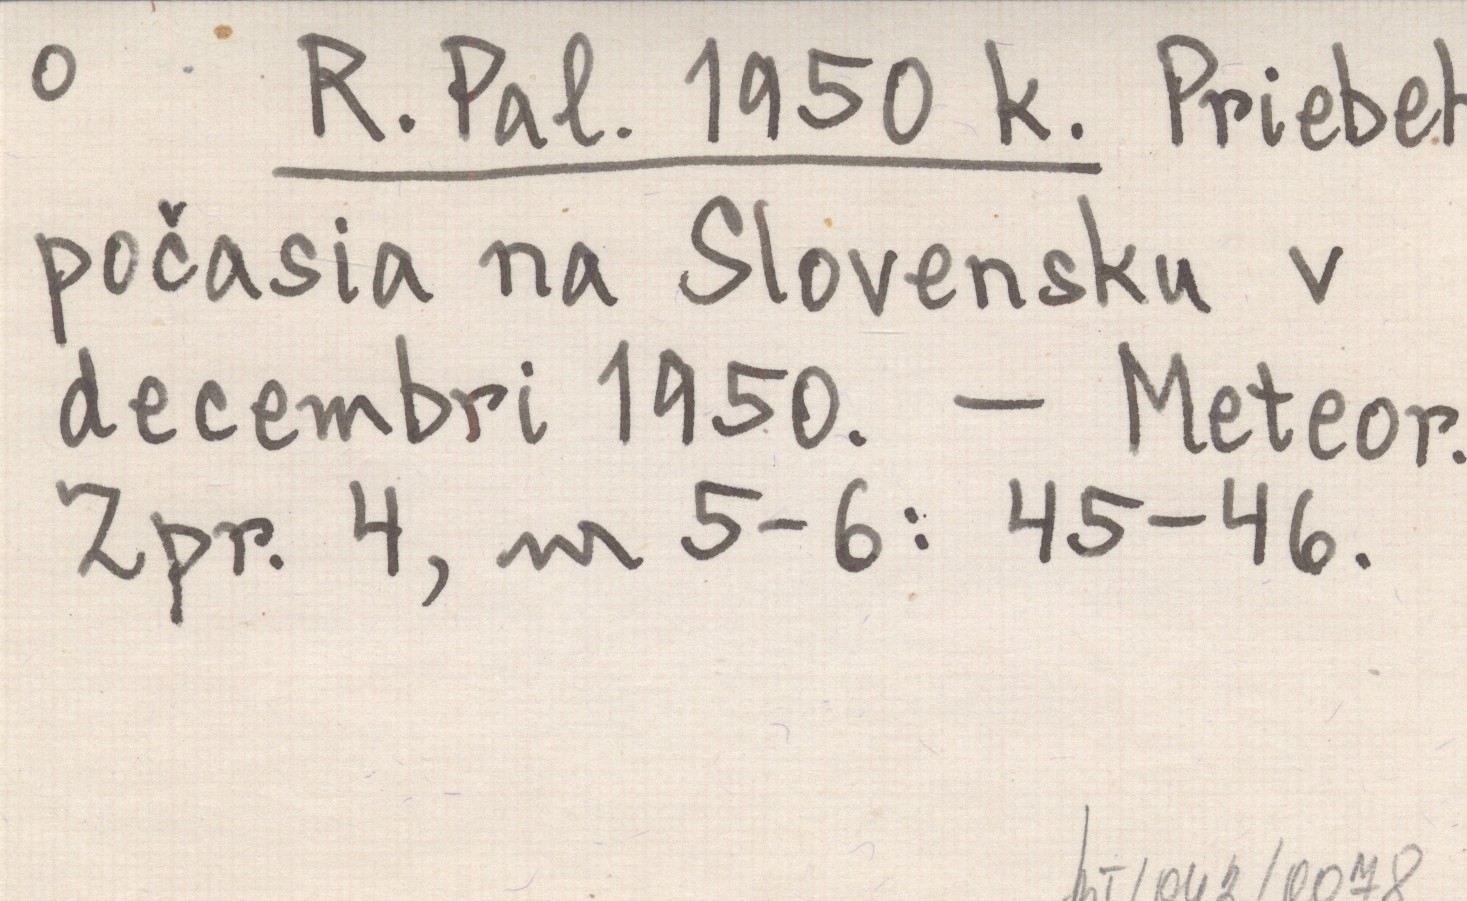 o R. Pal. 1950 k. Priebeh
počasia na Slovensku v
decembri 1950. — Meteor.
Zpr. 4, nr 5-6: 45-46.